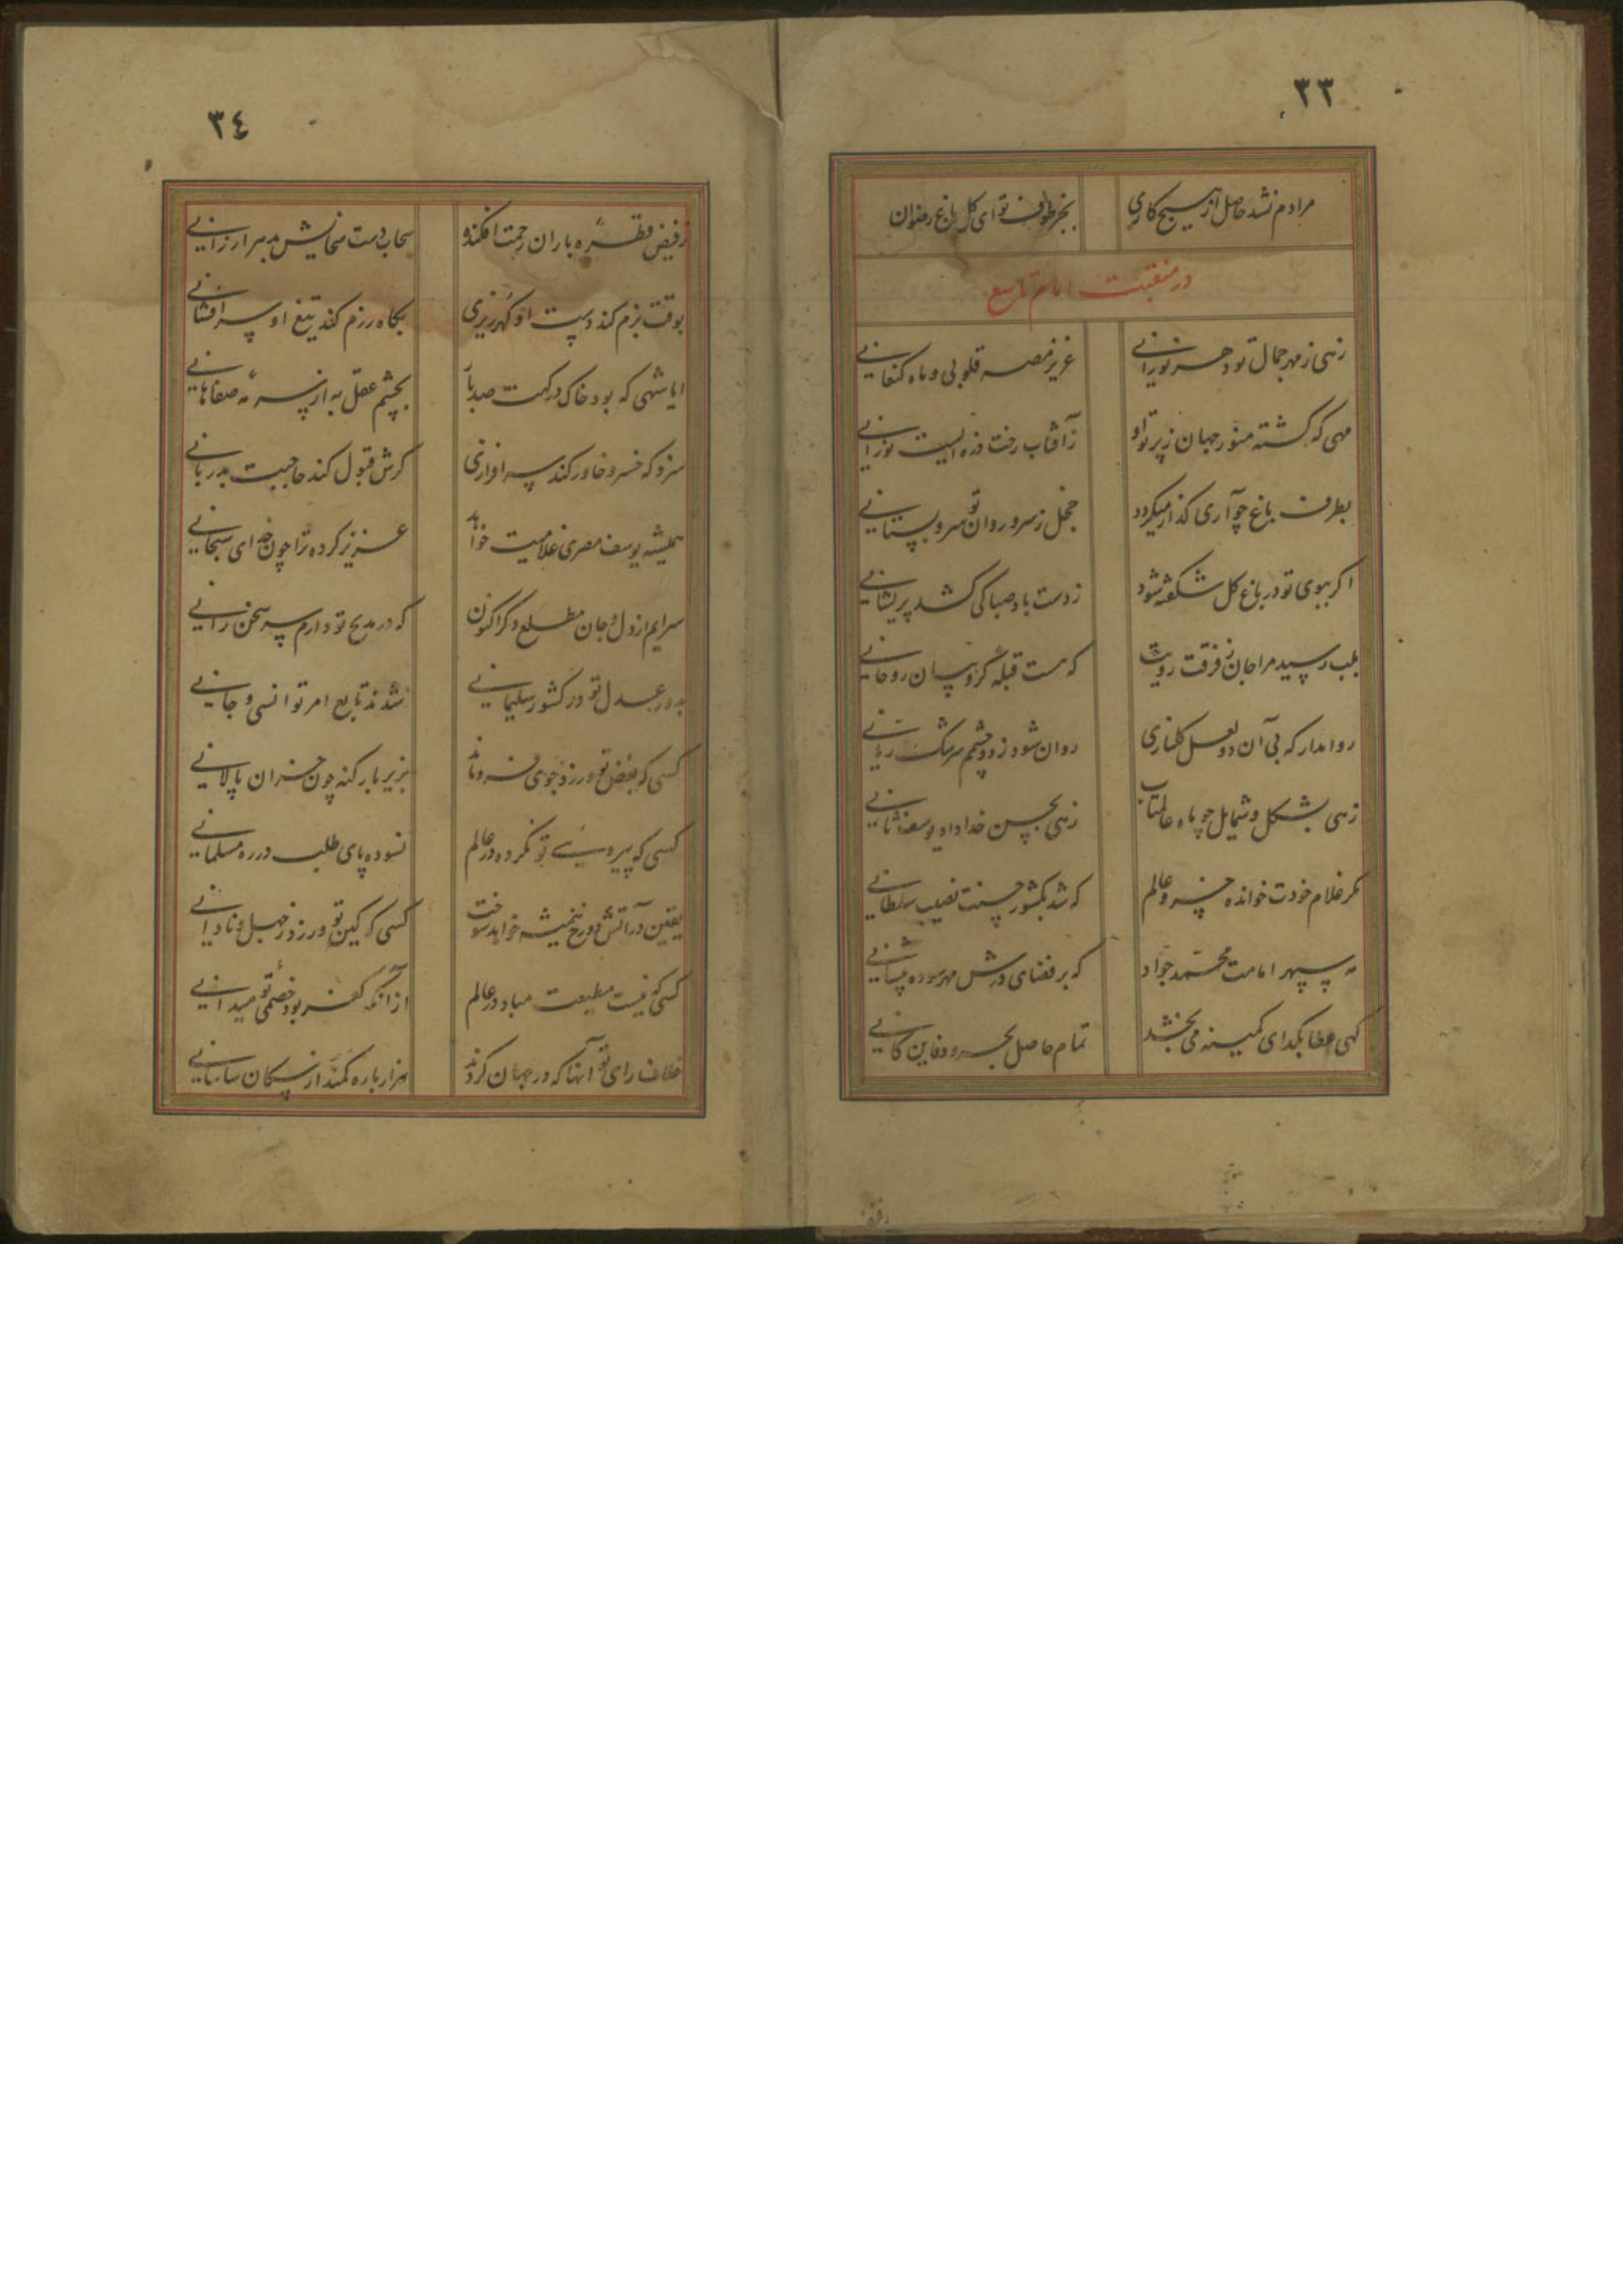 ٣٣
مرادم نشد حاصل از هیچ کاری بجز طوف تو ای کل باغ رضوان
در منقبت امام تاسع
زهی ز مهر جمال تو دهر نورانی عزیز مصر قلوبی و ماه کنعانی
مهی که کشته منور جهان ز پرتو او ز آفتاب رخت ذره ایست نورانی
بطرف باغ چو آری کذار میکردد خجل ز سرو روان تو سرو بستانی
اکر ببوی تو در باغ کل شکفته شود ز دست باد صبا کی کشد پریشانی
بلب رسید مرا جان ز فرقت رویت که هست قبله کروبیان روحانی
روا مدار که بی آن دو لعل کلناری روان شود ز دو چشم سرشک
زهی بشکل و شمایل چو ماه عالمتاب زهی بحسن خداداد یوسف ثانی
مکر غلام خودت خوانده خسرو عالم که شد بکشور حسنت نصیب سلطانی
مه سپهر امامت محمد جواد که بر فضای درش مهر سوده پیشانی
کهی عطا بکدای کمینه می بخشد تمام حاصل بحر و دفاین کانی
٣٤
ز فیض قطره باران رحمت افکند و سحاب دست سخایش بدهر ارزانی
بوقت بزم کند دست او کهرریزی بکاه رزم کند تیغ او سرافشانی
ایا شهی که بود خاک درکهت صد بار بچشم عقل به از سرمه صفاهانی
سزد که خسرو خاور کند سرافرازی کرش قبول کند حاجبت بدربانی
همیشه یوسف مصری غلامیت خواند عزیز کرده ترا چون خدای سبحانی
سرایم از دل و جان مطلع دکر اکنون که در مدیح تو دارم سر سخن رانی
بدور عدل تو در کشور سلیمانی شدند تابع امر تو انسی و جانی
کسی که بغض تو ورزد جوی فرو ماند بزیر بار کنه چون خران پالانی
کسی که پیروی تو نکرده در عالم نسوده پای طلب در ره مسلمانی
یقین در آتش دوزخ همیشه خواهد سوخت کسی که کین تو ورزد ز جهل و نادانی
کسی که نیست مطیعت مباد در عالم از آنکه کفر بود خصمی تو میدانی
خلاف رای تو آنها که در جهان کردند هزار باره کمند از سکان سامانی